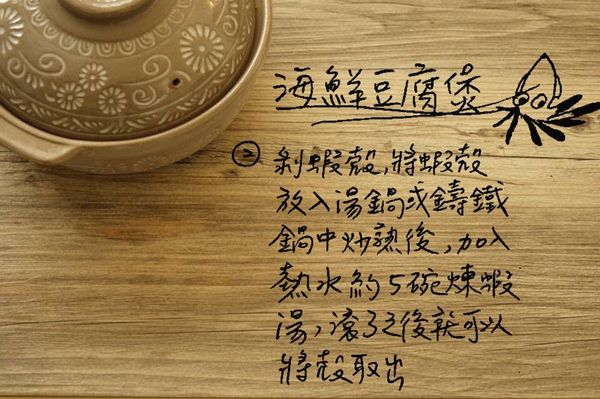 海鮮豆腐煲
② 剝蝦殼,將蝦殼
放入湯鍋或鑄鐵
鍋中炒熟後,加入
熱水約5碗煉蝦
湯,滾了之後就可以
將殼取出